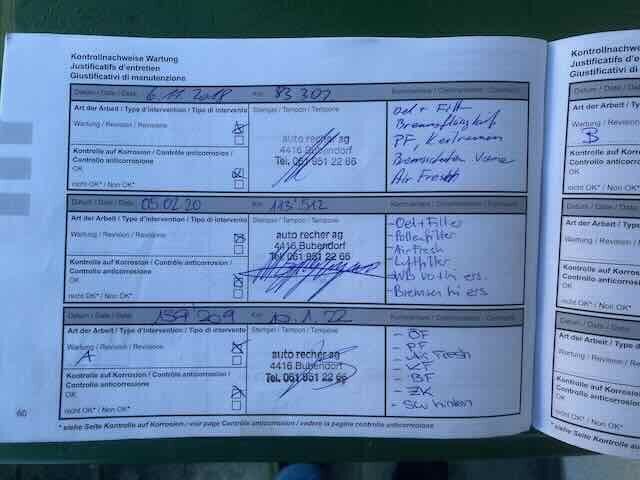 Kontrollnachweise Wartung
Justificatifs d'entretien
Giustificativi di manutenzione
Datum / Date / Data 6.11.2018 Km 83 302 Kommentare / Commentaires / Commenti
Art der Arbeit / Type d'intervention / Tipo di intervento
Stempel / Tampon / Tampone
Wartung / Revision / Revisione
Kontrolle auf Korrosion / Contrôle anticorrosion /
Controllo anticorrosione
OK
nicht OK* / Non OK*
auto recher ag
4416 Bubendorf
Tel. 061 951 22 66
Oel + Filt
Bremsflüssigkeit
PF, Keilriemen
Bremsscheiben Vorne
Air Fresh
Datum / Date / Data 05.02.20 Km 113'512
Art der Arbeit / Type d'intervention / Tipo di intervento
Stempel / Tampon / Tampone
Wartung / Revision / Revisione
Kontrolle auf Korrosion / Contrôle anticorrosion /
Controllo anticorrosione
OK
nicht OK* / Non OK*
auto recher ag
4416 Bubendorf
Tel. 061 951 22 66
- Oel + Filter
- Pollenfilter
- Air Fresh
- Luftfilter
- WB vorn ers.
- Bremsen hi ers
Datum / Date / Data 159'209 Km 12.1.22 Kommentare / Commentaires / Commenti
Art der Arbeit / Type d'intervention / Tipo di intervento
Stempel / Tampon / Tampone
Wartung / Revision / Revisione
A
Kontrolle auf Korrosion / Contrôle anticorrosion /
Controllo anticorrosione
OK
nicht OK* / Non OK*
auto recher ag
4416 Bubendorf
Tel. 061 951 22 66
- ÖF
- PF
- Air Fresh
- KF
- BF
- ZK
- SW hinten
60
* siehe Seite Kontrolle auf Korrosion / voir page Contrôle anticorrosion / vedere la pagina controllo anticorrosione
Kontrollnachwe
Justificatifs d'e
Giustificativi di
Datum / Date / Data
Art der Arbeit / Typ
Wartung / Revision /
B
Kontrolle auf Korros
Controllo anticorro
OK
nicht OK* / Non OK*
Datum / Date / Data
Art der Arbeit / Ty
Wartung / Revision
Kontrolle auf Korro
Controllo anticorr
OK
nicht OK* / Non OK*
Datum / Date / Data
Art der Arbeit /
Wartung / Revision
Kontrolle auf Ko
Controllo antic
OK
nicht OK* / Non
* siehe Seite Kont